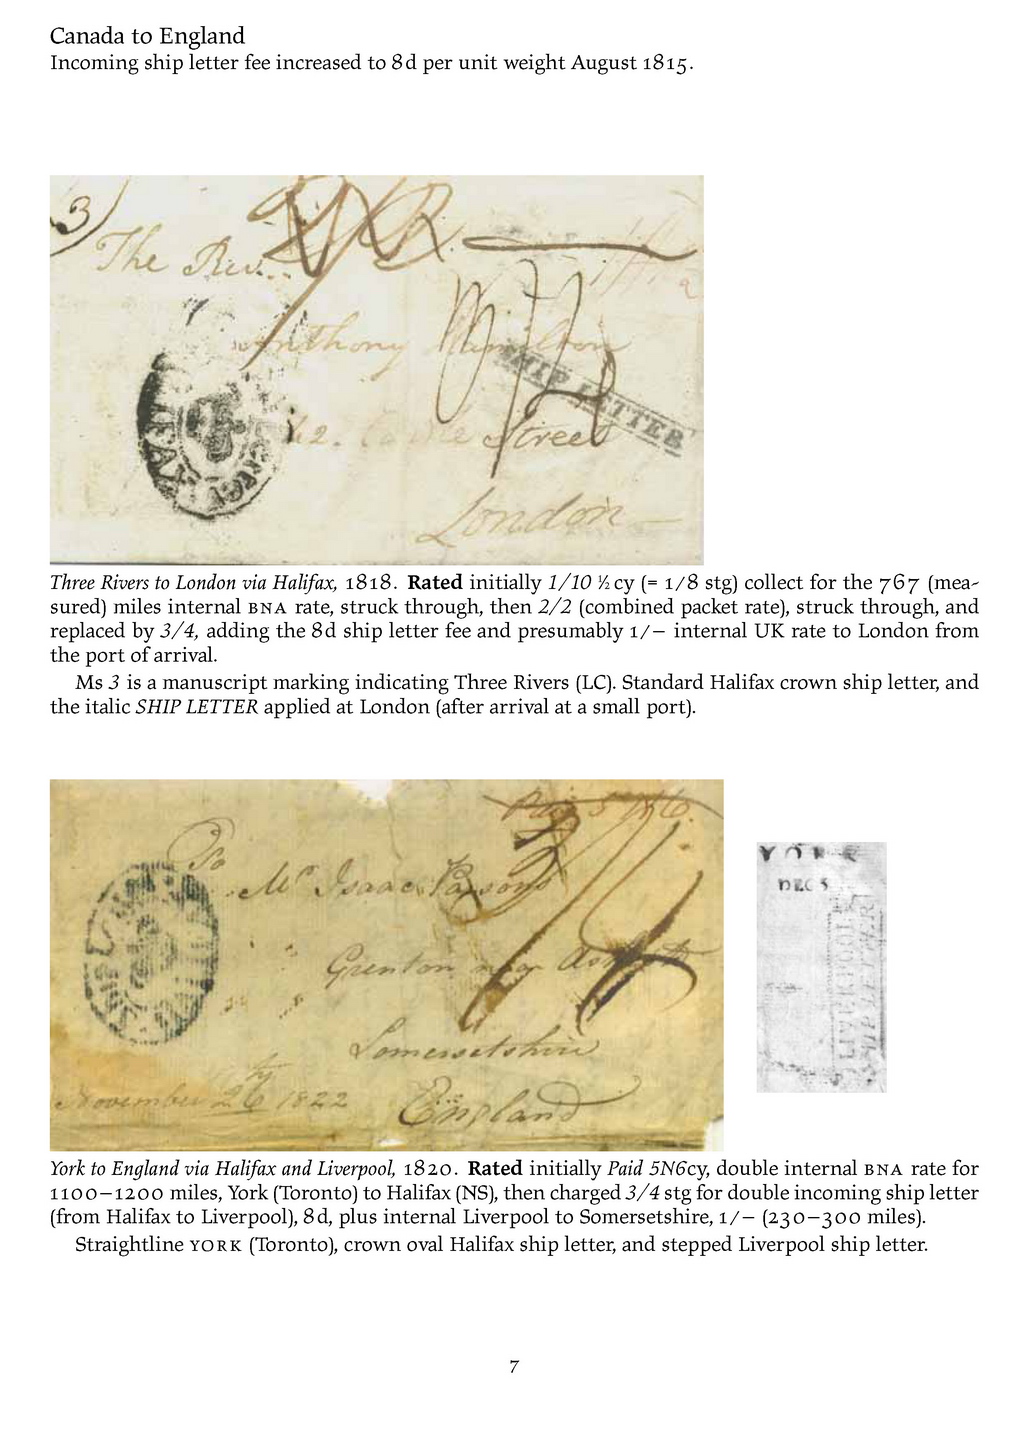 Canada to England
Incoming ship letter fee increased to 8d per unit weight August 1815.
3
The Rev.
Anthony Hamilton
SHIP LETTER
42. Castle Street
London
Three Rivers to London via Halifax, 1818. Rated initially 1/10 ½cy (= 1/8 stg) collect for the 767 (mea-
sured) miles internal BNA rate, struck through, then 2/2 (combined packet rate), struck through, and
replaced by 3/4, adding the 8d ship letter fee and presumably 1/– internal UK rate to London from
the port of arrival.
Ms 3 is a manuscript marking indicating Three Rivers (LC). Standard Halifax crown ship letter, and
the italic SHIP LETTER applied at London (after arrival at a small port).
Paid 5N6.
To
Mr Isaac Parsons
near
Somersetshire
England
November 26th 1822
YORK
DEC 5
LIVERPOOL
SHIP LETTER
York to England via Halifax and Liverpool, 1820. Rated initially Paid 5N6cy, double internal BNA rate for
1100–1200 miles, York (Toronto) to Halifax (NS), then charged 3/4 stg for double incoming ship letter
(from Halifax to Liverpool), 8d, plus internal Liverpool to Somersetshire, 1/– (230–300 miles).
Straightline YORK (Toronto), crown oval Halifax ship letter, and stepped Liverpool ship letter.
7